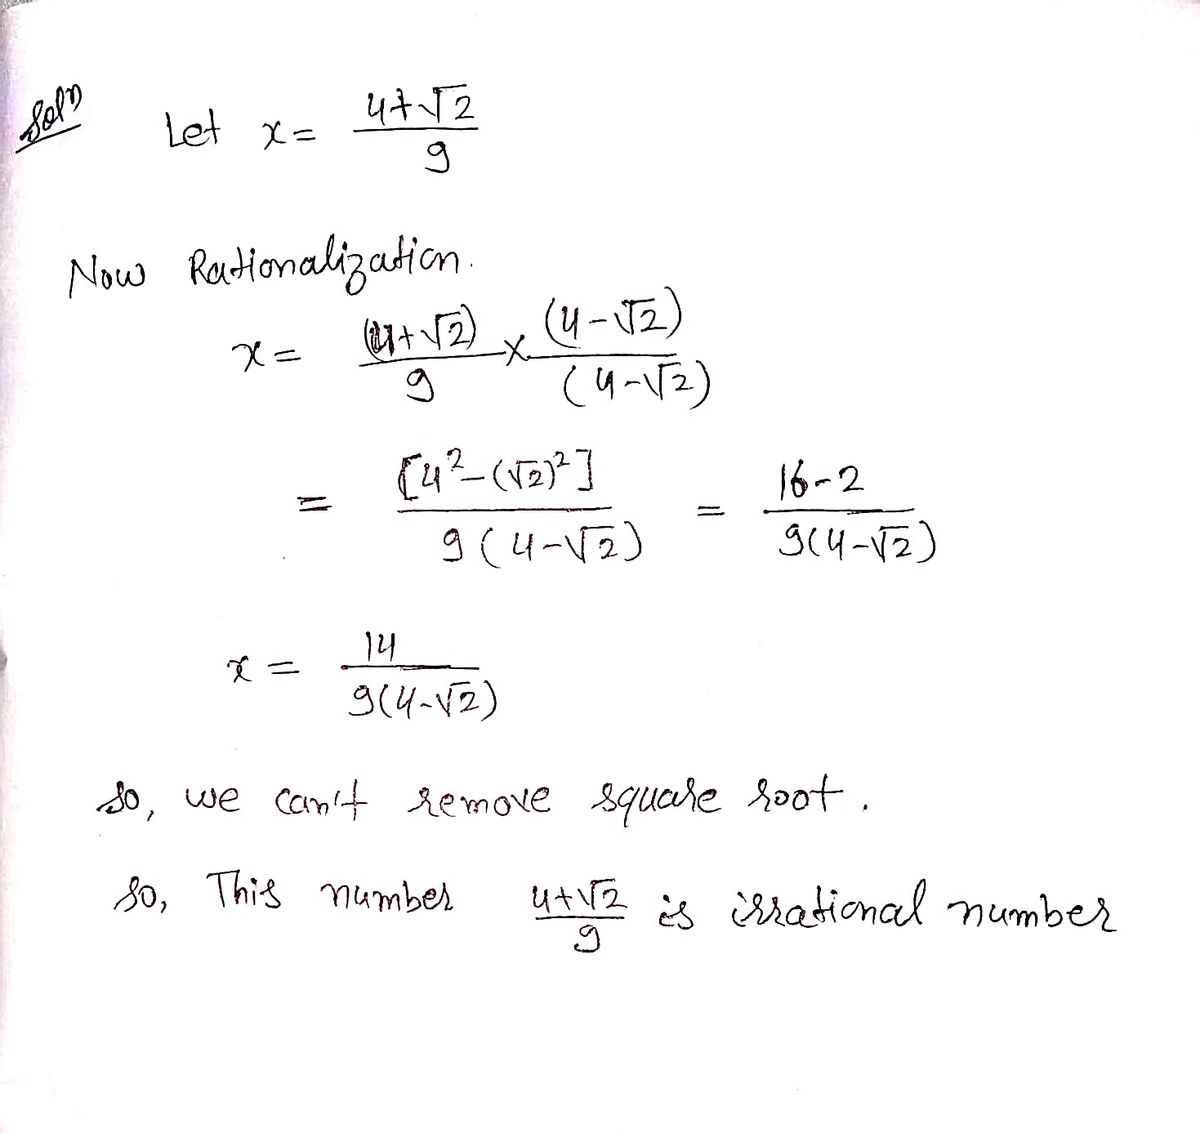 Soln
Let x = (4+√2)/9
Now Rationalization.
x = (4+√2)/9 × (4-√2)/(4-√2)
= [4²-(√2)²]/9(4-√2) = 16-2/9(4-√2)
x = 14/9(4-√2)
So, we can't remove square root.
So, This number 4+√2/9 is irrational number